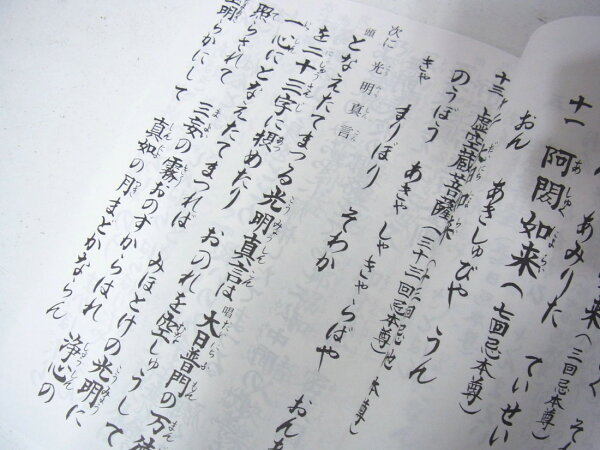 く そ
来（三回忌本尊）
ん あみりた ていせい
十一 阿閦如来（七回忌本尊）
おん あきしゅびや うん
十三 虚空蔵菩薩（三十三回忌本尊）
のうぼう あきゃ しゃきゃらばや おんあ
きゃ まりぼり そわか
次に 光明真言
頭 となえたてまつる光明真言は 大日普門の万徳
を二十三字に摂めたり おのれを空しゅうして
一心にとなえたてまつれば みほとけの光明に
照らされて 三妄の霧おのずからはれ 浄心の
玉明らかにして 真如の月まどかならん